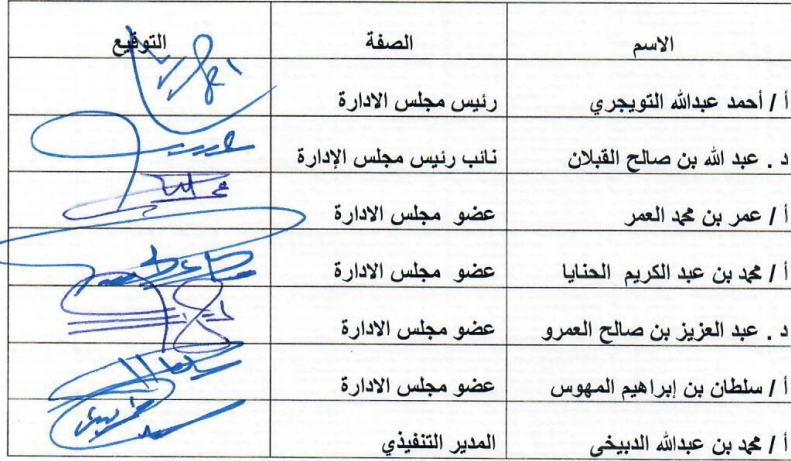 الاسم الصفة التوقيع
أ / أحمد عبدالله التويجري رئيس مجلس الادارة
د . عبد الله بن صالح القبلان نائب رئيس مجلس الإدارة
أ / عمر بن محمد العمر عضو مجلس الادارة
أ / محمد بن عبد الكريم الحنايا عضو مجلس الادارة
د . عبد العزيز بن صالح العمرو عضو مجلس الادارة
أ / سلطان بن إبراهيم المهوس عضو مجلس الادارة
أ / محمد بن عبدالله الدبيخى المدير التنفيذي